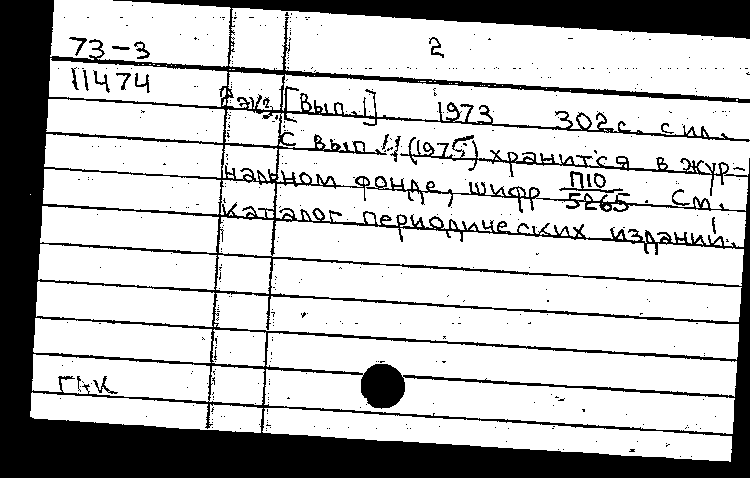 73-3 2
11474
2 экз. [Вып. 1]. 1973 302с. с ил.
С вып. 4 (1975) хранится в жур-
нальном фонде, шифр П10/5265. См.
каталог периодических изданий.
ГАК